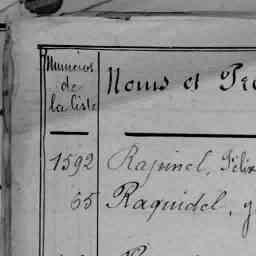 Numéros
de
la liste
Noms et Pré
1592 Rapinel, Félix
65 Raquidel, g